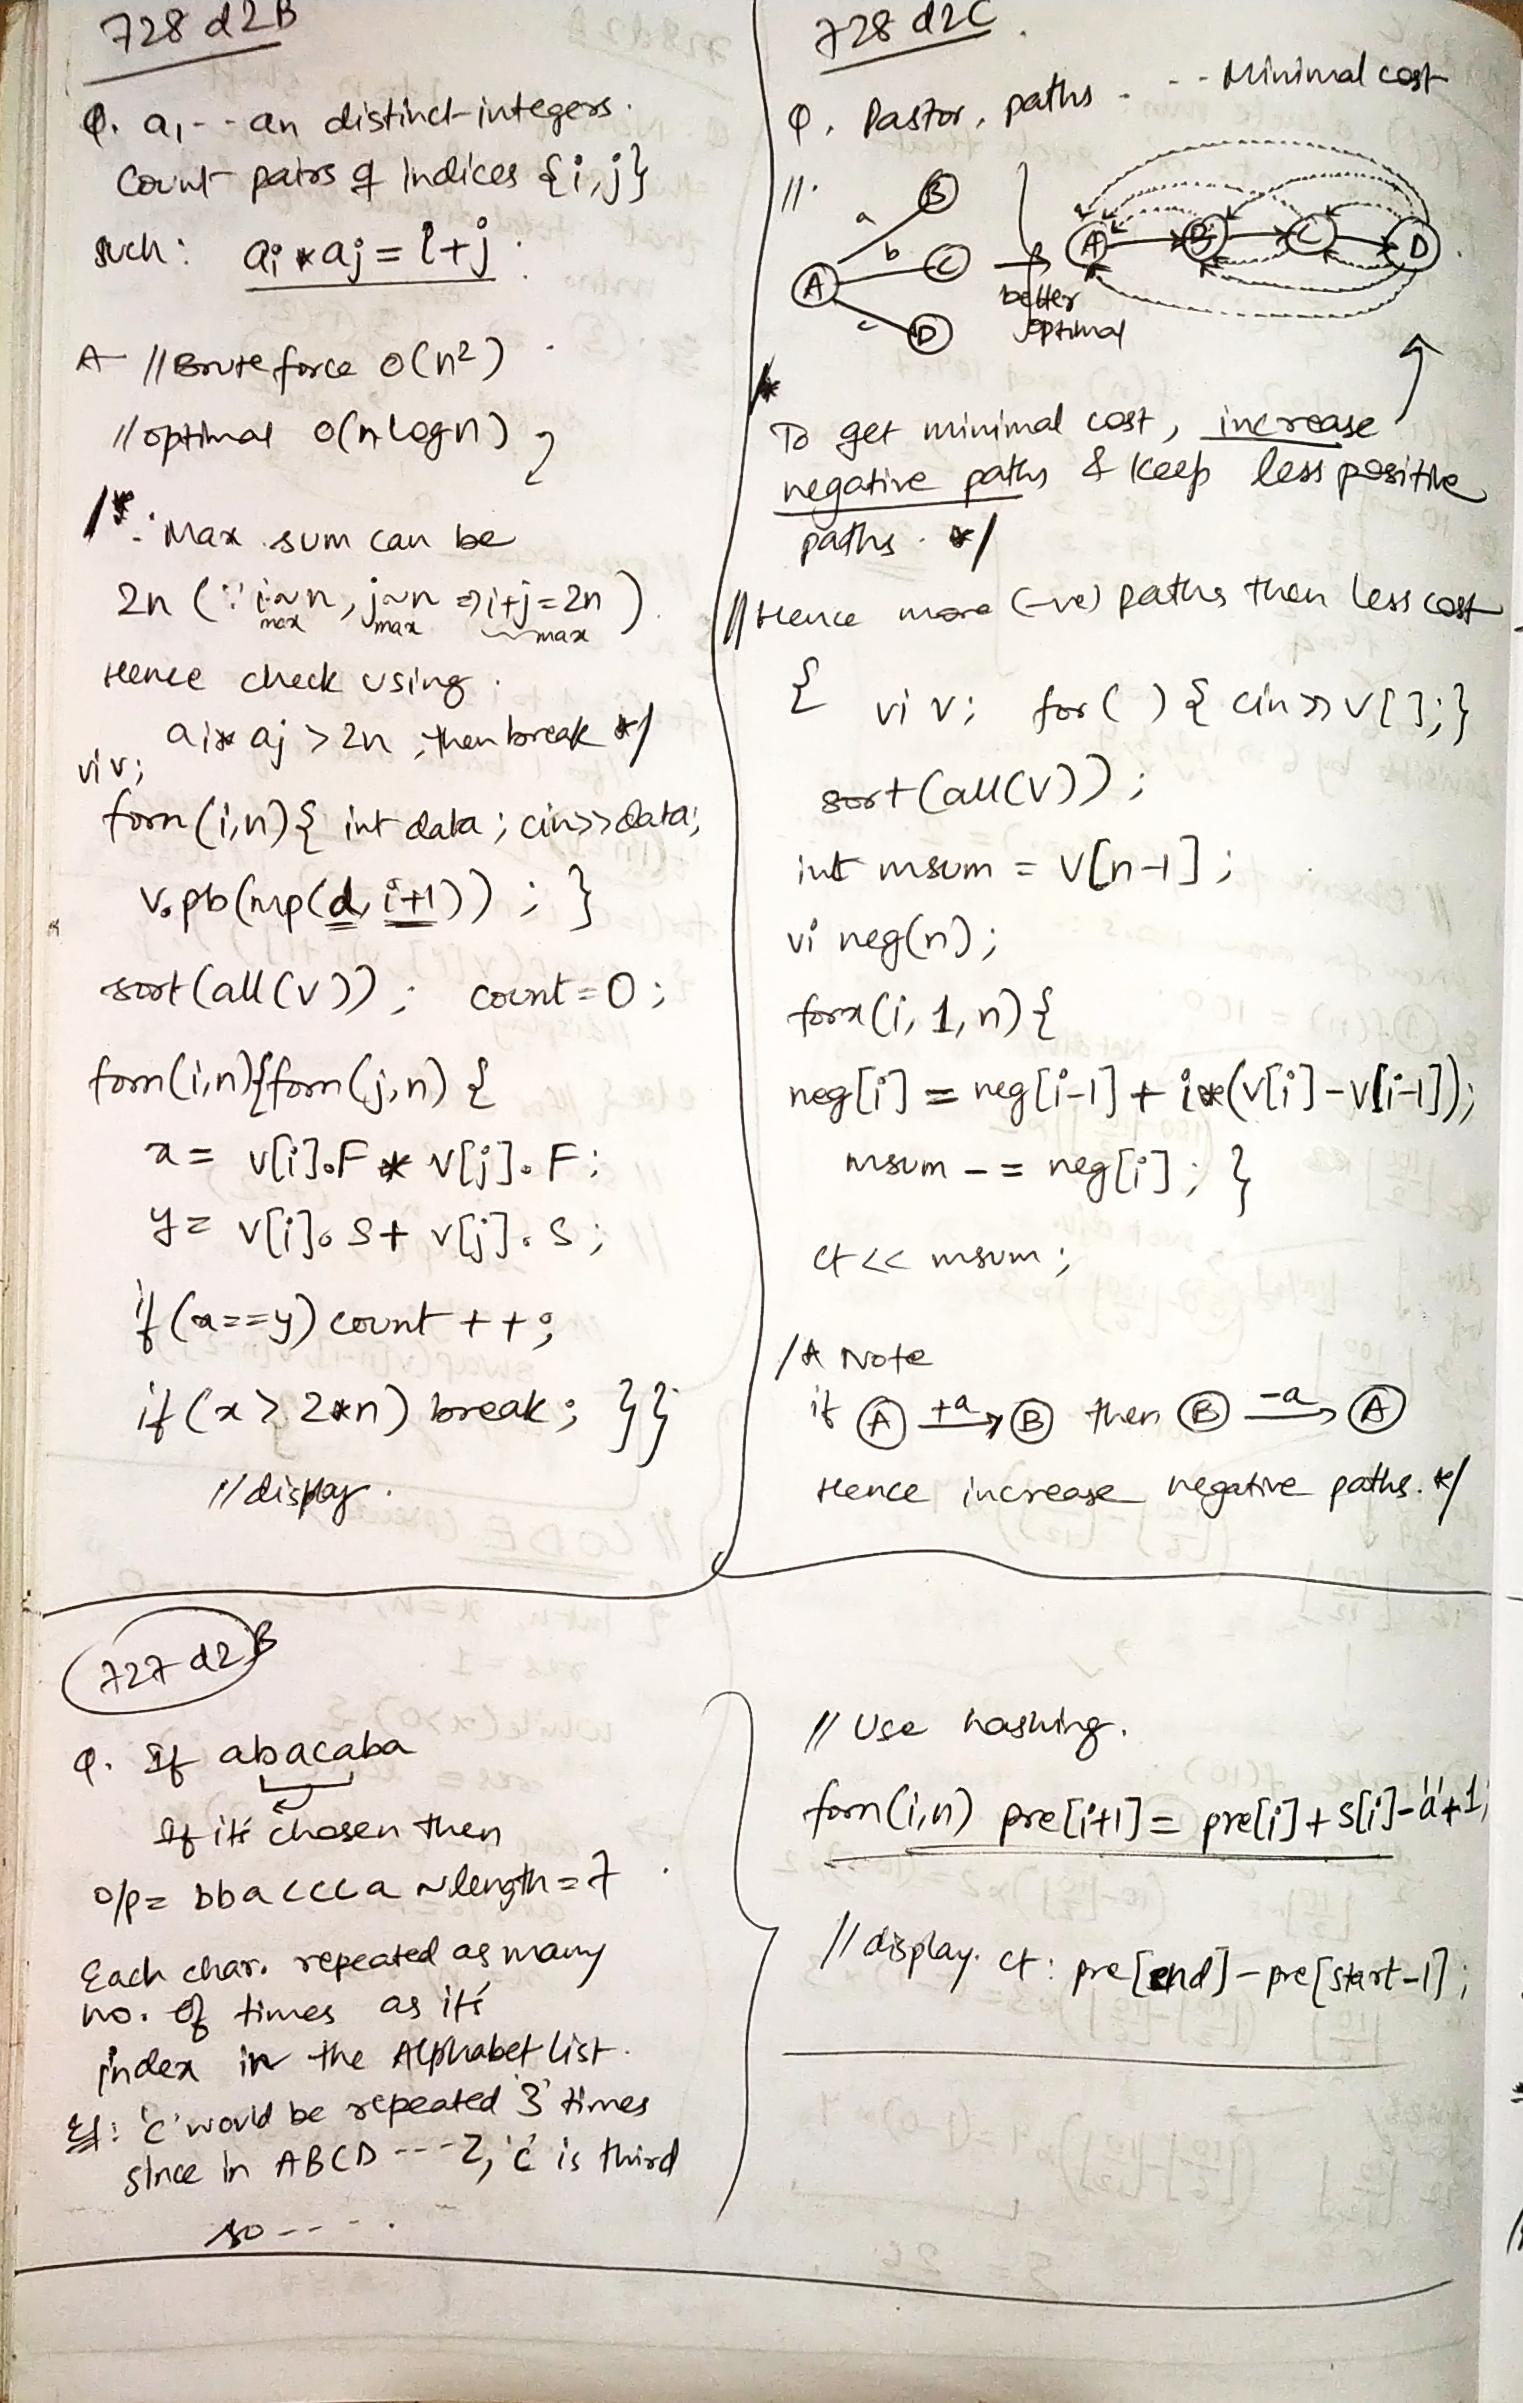 728 d2B
Q. a1 - - an distinct integers.
Count pairs of indices {i,j}
such: ai * aj = i+j.
A // Brute force O(n²)
// optimal O(n log n)
/* ∴ Max sum can be
2n (∵ i~n, j~n ⇒ i+j=2n)
max max max
Hence check using.
ai * aj > 2n, then break */
vi v;
forn(i,n){ int data; cin>>data;
v.pb(mp(d, i+1)); }
sort(all(v)); count=0;
forn(i,n){forn(j,n) {
x = v[i].F * v[j].F;
y = v[i].S + v[j].S;
if(x==y) count++;
if(x > 2*n) break; }}
// display.
728 d2C.
Q. Pastor, paths - - - Minimal cost
//.
A a B
b C
c D
better optimal
A B C D
/*
To get minimal cost, increase
negative paths & keep less positive
paths. */
// Hence more (-ve) paths then less cost
{ vi v; for( ) { cin>>v[ ];}
sort(all(v));
int msum = v[n-1];
vi neg(n);
forx(i, 1, n){
neg[i] = neg[i-1] + i*(v[i]-v[i-1]);
msum -= neg[i]; }
ct << msum;
/* Note
if A +a B then B -a A
Hence increase negative paths. */
727 d2B
Q. If abacaba
If it's chosen then
o/p = bbacccа ~ length = 7
Each char. repeated as many
no. of times as it's
index in the Alphabet list.
Ex: 'c' would be repeated '3' times
since in ABCD --- Z, 'c' is third
so - - - - .
// Use hashing.
forn(i,n) pre[i+1] = pre[i] + s[i]-'a'+1;
// display. ct: pre[end]-pre[start-1];